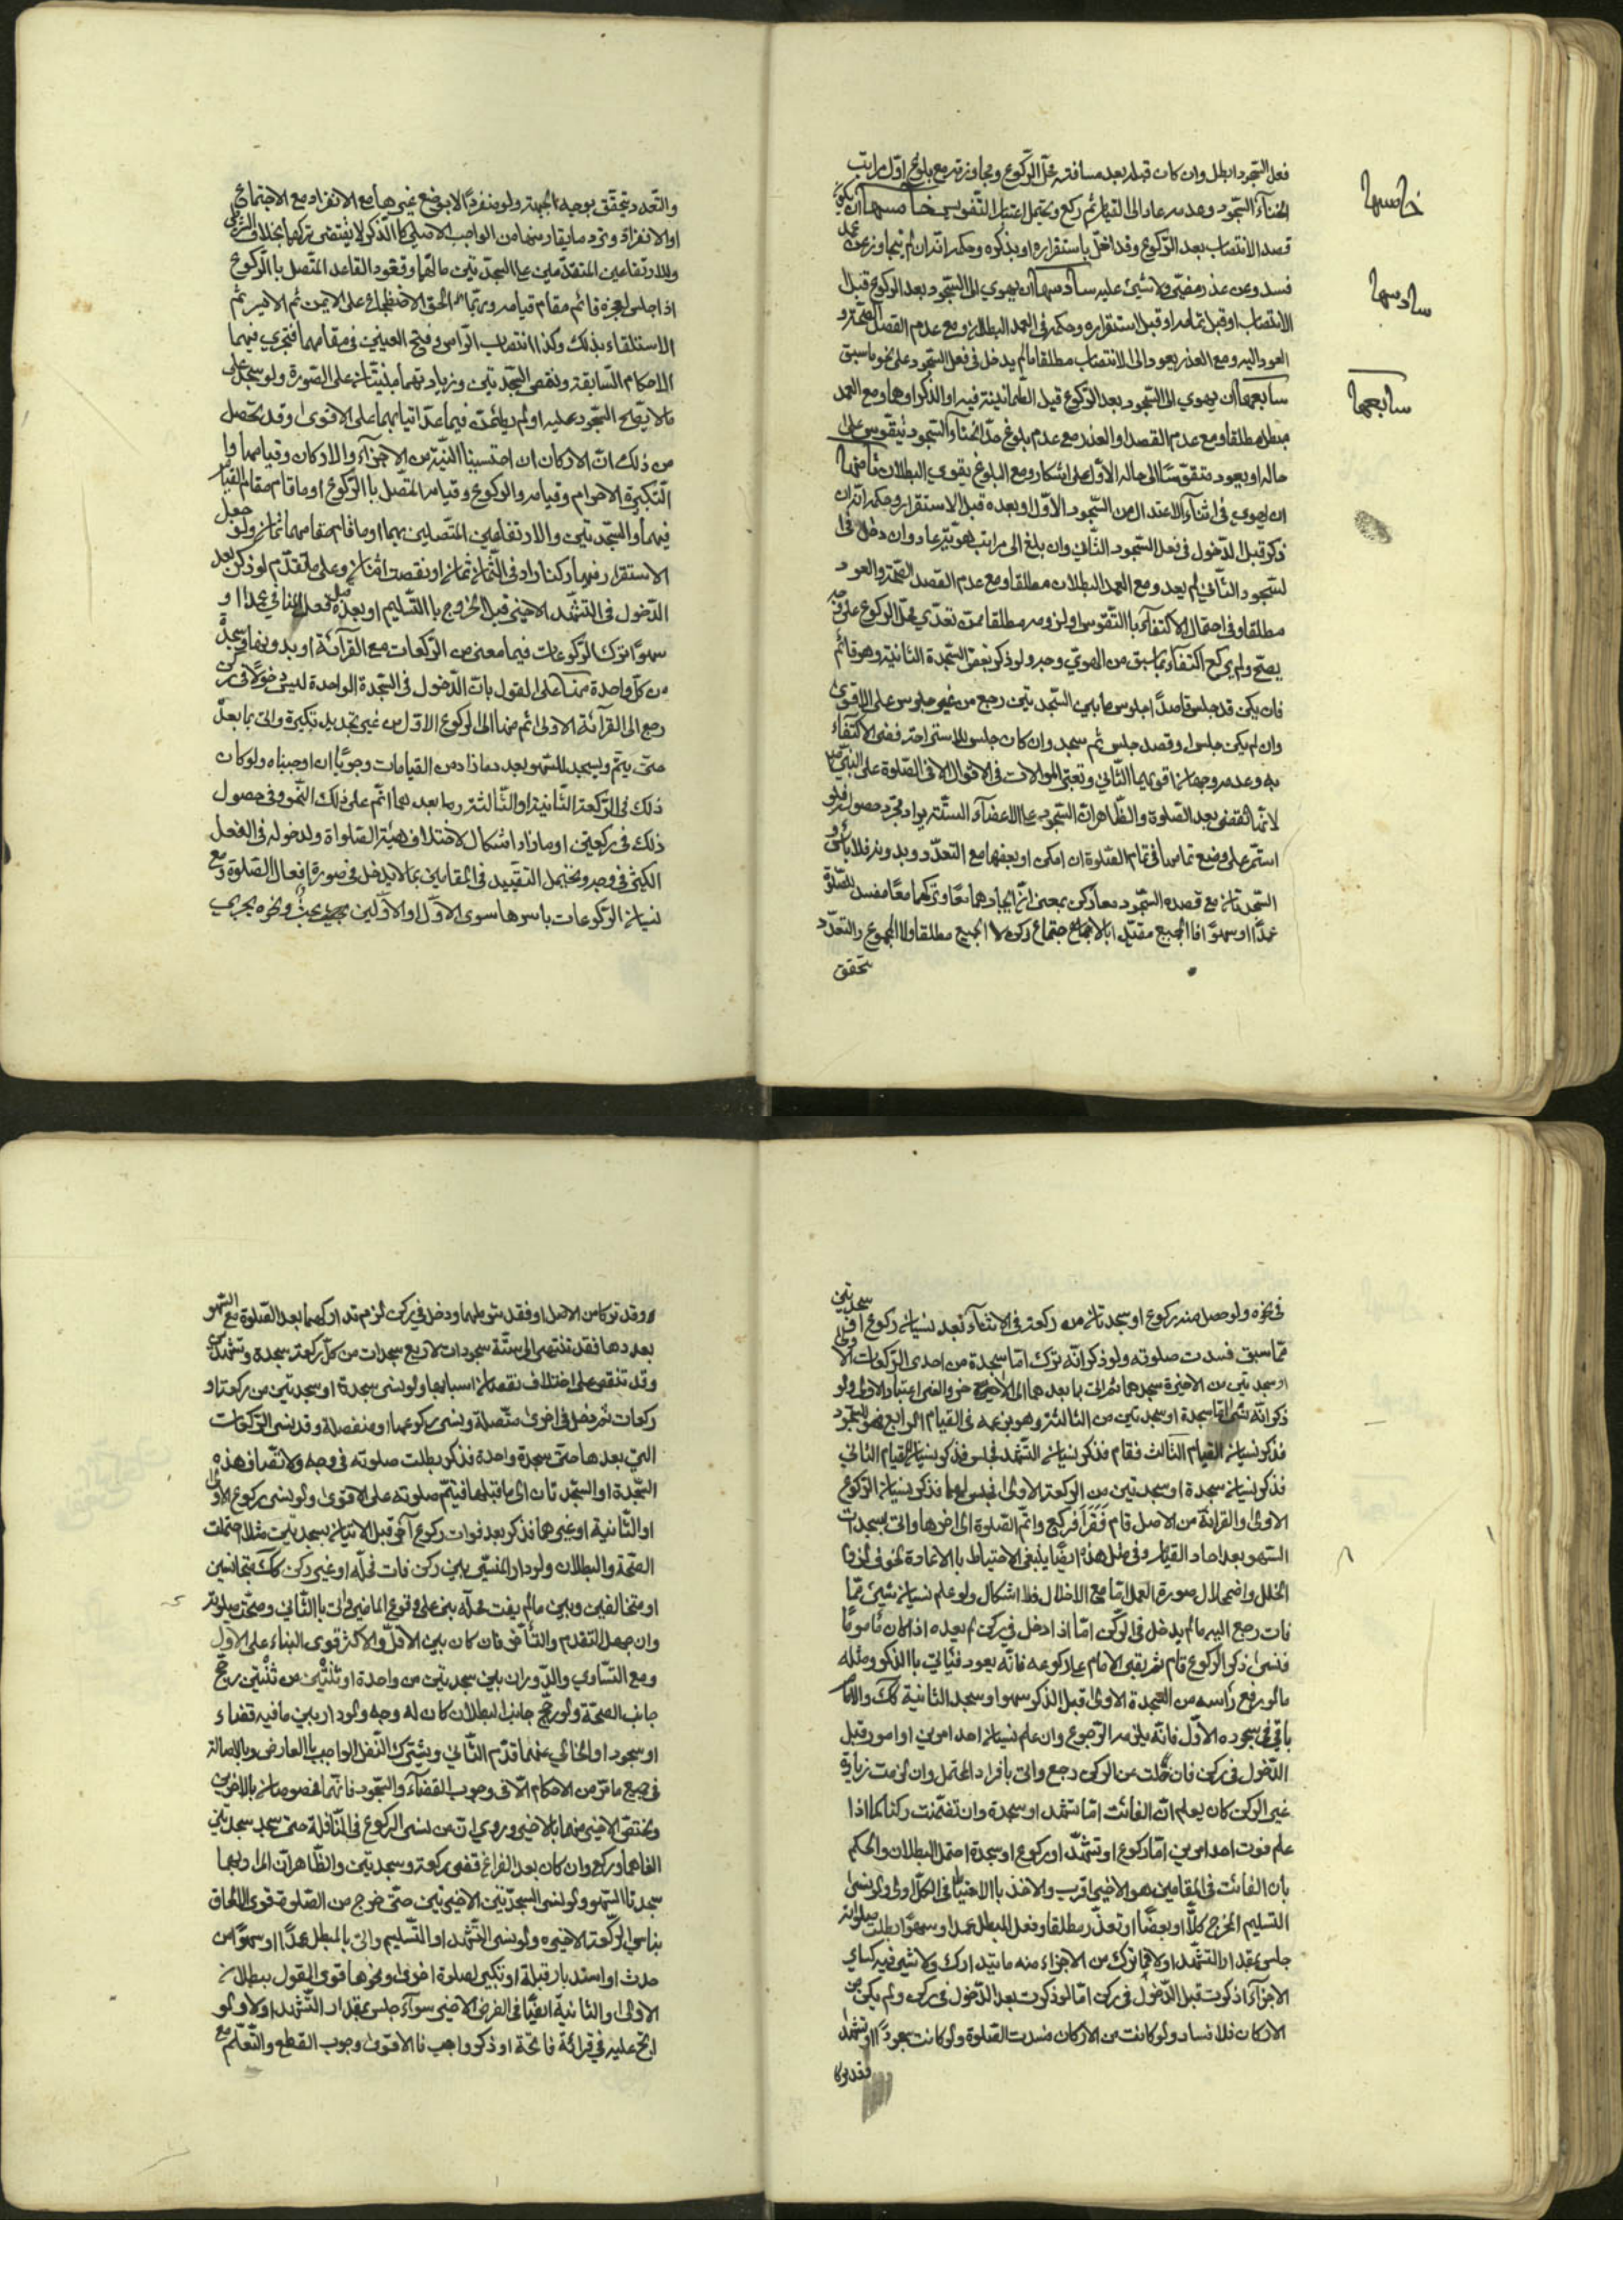 فعل السجود ابطل وان كان قبله بعد مسافته محل الركوع ومجاوزته مع بلوغ اول مراتب
انحناء السجود وعدمه عاد الى القيام ثم ركع ويحتمل اعتبار التقويس خامسها ان يكون
خامسها
قصد الانتصاب بعد الركوع وقد اخل باستقراره او بذكره وحكمه انه ان لم يتجاوز عن محله
فسد وعن عذر مضى ولا شيئ عليه سادسها ان يهوي الى السجود بعد الركوع قبل
سادسها
الانتصاب او قبل تمامه او قبل استقراره وحكمه في العمد البطلان ومع عدم القصد الصحة و
العود اليه ومع العذر يعود الى الانتصاب مطلقا ما لم يدخل في فعل السجود على نحو ما سبق
سابعها ان يهوي الى السجود بعد الركوع قبل الطمانينة فيه او الذكر او هما ومع العمد
سابعها
مبطل مطلقا ومع عدم القصد او العذر مع عدم بلوغ حد انحناء السجود يتقوس على
حاله او يعود متقوسا الى حاله الاول على اشكال ومع البلوغ يقوى البطلان ثامنها
ان يهوي في اثناء الاعتدال من السجود الاول او بعده قبل الاستقرار وحكمه انه ان
ذكر قبل الدخول في فعل السجود الثاني وان بلغ الى مراتب هويته عاد وان دخل في
السجود الثاني لم يعد ومع العمد البطلان مطلقا ومع عدم القصد الصحة والعود
مطلقا وفي احتمال الاكتفاء باالتقوس او لزومه مطلقا ممن تعدى محل الركوع على
يصح ولم يركع اكتفاء بما سبق من الهوي وجه ولو ذكر بعض السجدة الثانية وهو قائم
فان يكن قد جلس قاصدا جلوس ما بين السجدتين رجع من غير جلوس على الاقوى
وان لم يكن جلس او قصد جلس ثم سجد وان كان جلس للاستراحة ففي الاكتفاء
به وعدمه وجهان اقويهما الثاني وتعتبر الموالات في الاقوال الا في الصلوة على النبي
لانها تقضى بعد الصلوة والظاهر ان السجود على الاعضاء الستة يراد مجرد حصوله فلو
استمر على وضع تمامها في تمام الصلوة ان امكن او بعضها مع التعدد وبدونه فلا باس و
السجدتان مع قصده السجود معا ركن بمعنى ان ايجادهما معا وتركهما معا مفسد للصلوة
عمدا او سهوا فاالجميع مقيدا بالاجتماع ركن لا الجميع مطلقا ولا المجموع والتعدد
تحقق
والتعدد يتحقق بوجيه الجبهة ولو منفردا لا بوضع غيرها مع الانفراد مع الاجتماع
او الانفراد وتردد ما يقارنهما من الواجب الاصلي كاالذكر لا يقتضي تركهما بخلاف
وللارتفاعين المتقدمين على السجدتين مالهما وقعود القاعد المتصل باالركوع
اذا جلس لعجزه قائم مقام قيامه وربما الحق الاضطجاع على الايمن ثم الايسر ثم
الاستلقاء بذلك وكذا انتصاب الراس وفتح العينين في مقامهما فتجري فيهما
الاحكام السابقة ونقص السجدتين وزيادتهما مبنيتان على الصورة ولو سجد على
ما لا يصح السجود عليه او لم يطمئن فيهما عد اتيا بهما على الاقوى وقد تحصل
من ذلك ان الاركان ان احتسبنا النية من الاجزاء والاركان وقيامها وا
التكبيرة الاحرام وقيامه والركوع وقيامه المتصل باالركوع او ما قام مقام القيام
فيهما والسجدتين والارتفاعين المتصلين بهما او ما قام مقامهما ثمان ولو جعل
الاستقرار فيهما ركنا زاد في الثمان ثمان او نقصت اثنان وعلى ما تقدم لو ذكر بعد
الدخول في التشهد الاخير قبل الخروج باالتسليم او بعده قبل فعل المنافي عمدا او
سهوا ترك الركوعات فيما معنى من الركعات مع القرآئة او بدونها وسجدة
من كل واحدة منها على القول بان الدخول في السجدة الواحدة ليس دخولا في ركن
رجع الى القرآئة الاولى ثم منها الى الركوع الاول من غير تجديد تكبيرة واتى بما بعد
حتى يتم ويسجد للسهو بعد ما زاد من القيامات وجوبا ان اوجبناه ولو كان
ذلك في الركعة الثانية او الثالثة وما بعدها اتم على ذلك النحو وفي حصول
ذلك في ركعتين او ما زاد اشكال لاختلاف هيئة الصلواة ولدخوله في الفعل
الكثير في وجه ويحتمل التقييد في المقامين بما لا يدخل في صورة افعال الصلوة ومع
نسيان الركوعات باسرها سوى الاول او الاولين بحث ونحوه يجري
في نحوه ولو حصل منه ركوع او سجدتان من ركعة في الاثناء بعد نسيان ركوع او سجدتين
مما سبق فسدت صلوته ولو ذكر انه ترك اما سجدة من احدى الركعات الاولى
او سجدتين من الاخيرة سجدهما ثم اتى بما بعدهما الى الاخير والغى اعتبار الاولى ولو
ذكر انه نسي اما سجدة او سجدتين من الثالثة وهو بزعمه في القيام الرابع فهوى للسجود
فذكر نسيان القيام الثالث فقام فذكر نسيان التشهد فجلس فذكر نسيان القيام الثاني
فذكر نسيان سجدة او سجدتين من الركعة الاولى فجلس لها فذكر نسيان الركوع
الاولى والقرائة من الاصل قام فقرا فركع واتم الصلوة الى اخرها واتى بسجدات
السهو بعدا حاد القيام وفي مثل هذه ايضا ينبغي الاحتياط باالاعادة لخوف لزوم
الخلل واضمحلال صورة العمل اما مع الاخلال فلا اشكال ولو علم نسيان شيئ مما
فات رجع اليه ما لم يدخل في الركن اما اذا ادخل في ركن لم يعده اذا كان ماموما
فنسى ذكر الركوع قام ثم بقى الامام على ركوعه فانه يعود فياتي باالذكر ومثله
ما لو رفع راسه من السجدة الاولى قبل الذكر سهوا وسجد الثانية كك والامام
باقي في سجوده الاول فانه يلزمه الرجوع وان علم نسيان احد امرين او امور قبل
الدخول في ركن فان خلت عن الركن رجع واتى بافراد المحتمل وان لزمت زيادة
غير الركن كان يعلم ان الفائت اما تشهد او سجدة وان تضمنت ركنا كما اذا
علم فوت احد امرين اما ركوع او تشهد او ركوع او سجدة احتمل البطلان والحكم
بان الفائت في المقامين هو الاخير اقرب والاخذ باالاحتياط في الكل اولى ولو نسى
التسليم المخرج كلا او بعضا او تعذر مطلقا وفعل المبطل عمدا او سهوا بطلت صلوته
جلس بمقدار التشهد اولا فما ترك من الاجزاء منه ما يتدارك ولا شيئ فيه كساير
الاجزاء اذا ذكرت قبل الدخول في ركن اما لو ذكرت بعد الدخول في ركن ولم يكن من
الاركان فلا فساد ولو كانت من الاركان فسدت الصلوة ولو كانت سجودا او تشهد
فقد تركا
وقد تركا من الاصل او فقد شرطهما ودخل في ركن لزم تداركهما بعد الصلوة مع السهو
بعددها فقد تنتهي الى ستة سجودات لاربع سجدات من كل ركعة سجدة وتشهدين
وقد تنقص على اختلاف نقصان اسبابها ولو نسى سجدة او سجدتين من ركعة او
ركعات ثم دخل في اخرى متصلة ونسى ركوعها او منفصلة وقد نسى الركعات
التي بعدها حتى سجدة واحدة فذكر بطلت صلوته في وجه ولا تضاف هذه
السجدة او السجدتان الى ما قبلها فيتم صلوته على الاقوى ولو نسى ركوع الاولى
او الثانية او غيرهما فذكر بعد فوات ركوع آخر قبل الاتيان بسجدتيه مثلا احتملت
الصحة والبطلان ولو دار المنسي بين ركن فات محله او غير ركن كك متجانسين
او متخالفين وبين مالم يفت محله بنى على وقوع الماضي واتى باالثاني وصحت صلوته
وان جهل التقدم والتأخر فان كان بين الاقل والاكثر قوى البناء على الاول
ومع التساوي والدوران بين سجدتين من واحدة او ثنتين من ثنتين رجح
جانب الصحة ولو رجح جانب البطلان كان له وجه ولو دار بين ما فيه قضاء
او سجود او الخالي عنهما قدم الثاني ويشترك النفل الواجب باالعارض وبالاصالة
في جميع ما مر من الاحكام الا في وجوب القضاء والسجود فانهما مخصوصان بالاخير
ويختص الاخير منهما بالاخير وروي ان من نسى الركوع في النافلة حتى سجد سجدتين
الغاهما وركع وان كان بعد الفراغ قضى ركعة وسجدتين والظاهر ان المراد بهما
سجدتا السهو ولو نسى السجدتين الاخيرتين حتى خرج من الصلوة قوى الالحاق
بناسي الركعة الاخيره ولو نسى التشهد او التسليم واتى بالمبطل عمدا او سهوا من
حدث او استدبار قبلة او تكبير لصلوة اخرى ونحوها قوى القول ببطلان
الاولى والثانية ايضا في الفرض الاخير سوآء جلس بمقدار التشهد اولا ولو
ارتج عليه في قرائة فاتحة او ذكر واجب فا الاقوى وجوب القطع والتعلم مع